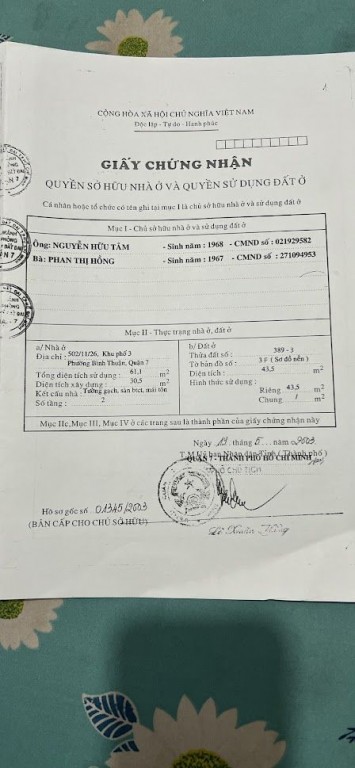 CỘNG HÒA XÃ HỘI CHỦ NGHĨA VIỆT NAM
Độc lập - Tự do - Hạnh phúc
GIẤY CHỨNG NHẬN
QUYỀN SỞ HỮU NHÀ Ở VÀ QUYỀN SỬ DỤNG ĐẤT Ở
Cá nhân hoặc tổ chức có tên ghi tại mục I là chủ sở hữu nhà ở và sử dụng đất ở
Mục I - Chủ sở hữu nhà ở và sử dụng đất ở
Ông: NGUYỄN HỮU TÂM - Sinh năm : 1968 - CMND số : 021929582
Bà: PHAN THỊ HỒNG - Sinh năm : 1967 - CMND số : 271094953
Mục II - Thực trạng nhà ở, đất ở
a/ Nhà ở
Địa chỉ : 502/11/26, Khu phố 3
Phường Bình Thuận, Quận 7
Tổng diện tích sử dụng : 61,1 m2
Diện tích xây dựng : 30,5 m2
Kết cấu nhà : Tường gạch, sàn btct, mái tôn
Số tầng : 2
b/ Đất ở
Thửa đất số : 389 - 3
Tờ bản đồ số : 3 # (Sơ đồ nền)
Diện tích : 43,5 m2
Hình thức sử dụng :
Riêng 43,5 m2
Chung / m2
Mục IIc, Mục III, Mục IV ở các trang sau là thành phần của giấy chứng nhận này
Ngày 19 tháng 5 năm 2003
T.M Ủy ban Nhân dân Tỉnh ( Thành phố )
QUẬN 7 - THÀNH PHỐ HỒ CHÍ MINH
CHỦ TỊCH
Hồ sơ gốc số 01345/2003
(BẢN CẤP CHO CHỦ SỞ HỮU)